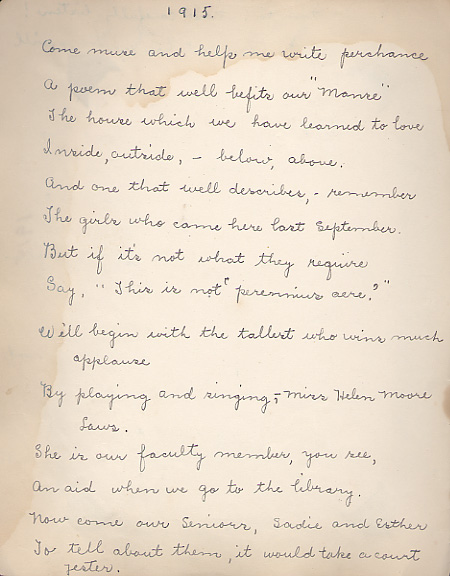 1915.
Come muse and help me write perchance
A poem that well befits our "Manse"
The house which we have learned to love
Inside, outside, - below, above.
And one that well describes, - remember
The girls who came here last September.
But if it's not what they require
Say, "This is not 'perennius aere.'"
We'll begin with the tallest who wins much
applause
By playing and singing, - Miss Helen Moore
Laws.
She is our faculty member, you see,
An aid when we go to the library.
Now come our Seniors, Sadie and Esther
To tell about them, it would take a court
jester.